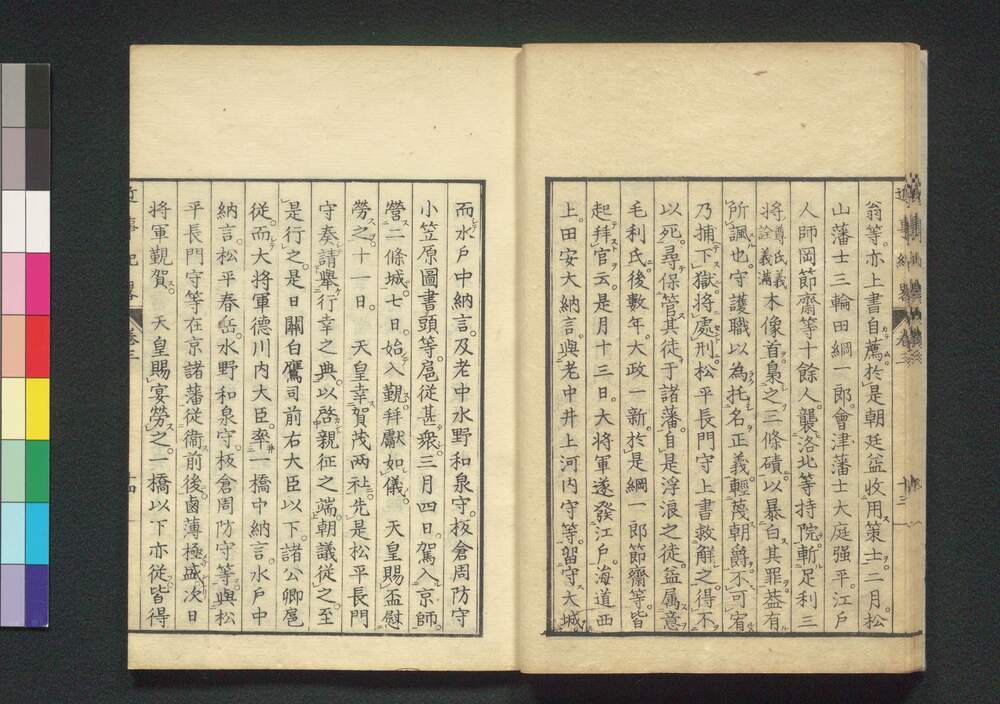 翁等。亦上書自薦。於是朝廷益收用策士。二月。松
山藩士三輪田綱一郎。會津藩士大庭强平。江戸
人師岡節齋等十餘人。襲洛北等持院。斬足利三
將尊氏義詮義滿木像首。梟之三條磧。以暴白其罪。蓋有
所諷也。守護職以為托名正義。輕蔑朝爵。不可宥。
乃捕下獄。將處刑。松平長門守上書救解之。得不
以死。尋保管其徒于諸藩。自是浮浪之徒。益属意
毛利氏。後數年。大政一新。於是綱一郎節齋等。皆
起拜官云。是月十三日。大將軍遂發江戸。海道西
上。田安大納言。與老中井上河内守等。留守大城。
而水戸中納言。及老中水野和泉守。板倉周防守
小笠原圖書頭等。扈從甚衆。三月四日。駕入京師。
營二條城。七日。始入覲。拜獻如儀。 天皇賜盃慰
勞之。十一日。 天皇幸賀茂两社。先是松平長門
守奏請擧行幸之典。以啓親征之端。朝議從之。至
是行之。是日關白鷹司前右大臣以下。諸公卿扈
從。而大將軍德川内大臣。率一橋中納言。水戸中
納言。松平春岳。水野和泉守。板倉周防守等。與松
平長門守等在京諸藩。從衞前後。鹵薄極盛。次日
將軍覲賀。 天皇賜宴勞之。一橋以下亦從。皆得
卷三
十四